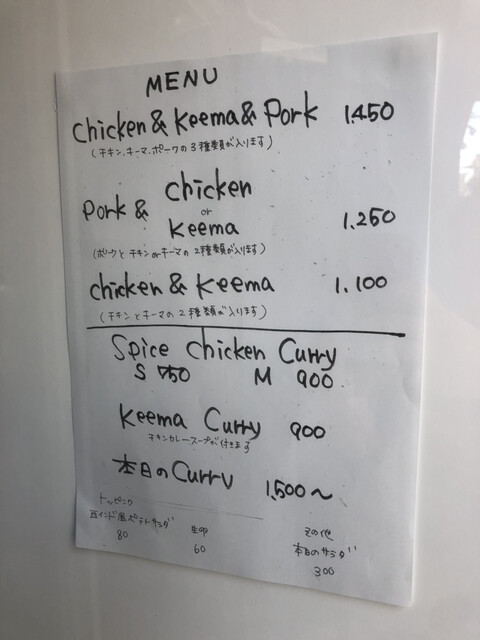 MENU
Chicken & Keema & Pork 1,450
(チキン、キーマ、ポークの3種類が入ります)
Pork & chicken or Keema 1,250
(ポークとチキンorキーマの2種類が入ります)
chicken & Keema 1,100
(チキンとキーマの2種類が入ります)
Spice Chicken Curry
S 750 M 900
Keema Curry 900
チキンカレースープが付きます
本日のCurry 1,500〜
トッピング
西インド風ポテトサラダ 生卵 その他
80 60 本日のサラダ
300